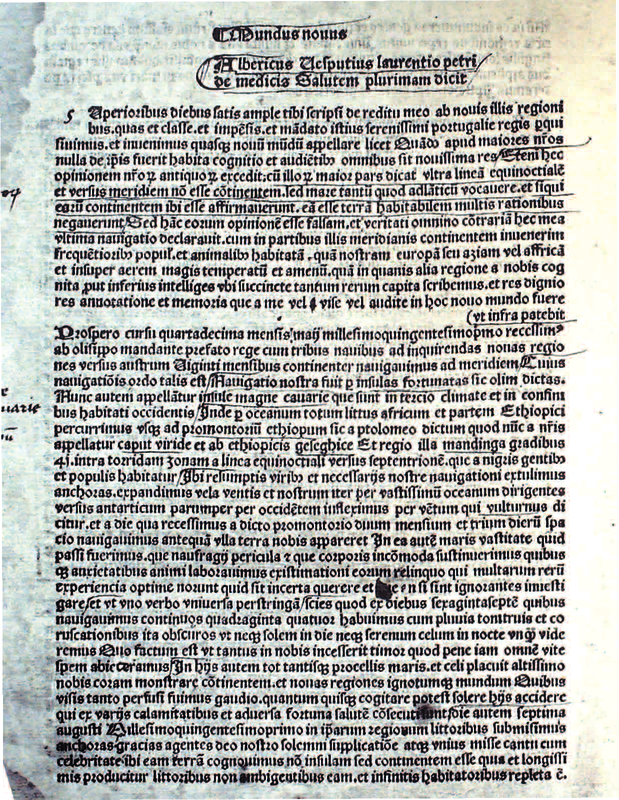 Mundus nouus
Albericus Uesputius laurentio petri
de medicis Salutem plurimam dicit
Superioribus diebus satis ample tibi scripsi de reditu meo ab nouis illis regioni
bus. quas et classe. et impẽsis. et mãdato istius serenissimi portugalie regis ꝑqui
siuimus. et inuenimus quasqꝫ nouũ mũdũ appellare licet Quãdo apud maiores nr̃os
nulla de ip̃is fuerit habita cognitio et audiẽtibꝰ omnibus sit nouissima res/ Eteni hec
opinionem nr̃oꝝ antiquoꝝ excedit: cũ illoꝝ maior pars dicat vltra lineã equinoctialẽ
et versus meridiem nõ esse cõtinentem. sed mare tantũ quod adlãticũ vocauere. et siqui
earũ continentem ibi esse affirmauerunt. eã esse terrã habitabilem multis rationibus
negauerunt. Sed hãc eorum opinionẽ esse falsam. et veritati omnino cõtrariã hec mea
vltima nauigatio declarauit. cum in partibus illis meridianis continentem inuenerim
frequẽtioribꝰ populꝭ. et animalibꝰ habitatã. quã nostram europã seu aziam vel affricã
et insuper aerem magis temperatũ et amenũ. quã in quauis alia regione a nobis cog
nita ꝓut inferius intelliges vbi succincte tantum rerum capita scribemus. et res dignio
res annotatione et memoria que a me vel ꝉ vise vel audite in hoc nouo mundo fuere
(vt infra patebit
Prospero cursu quartadecima mensis maij millesimoquingentesimopmo recessimꝰ
ab olisippo mandante prefato rege cum tribus nauibus ad inquirendas nouas regio
nes versus austrum Uiginti mensibus continenter nauigauimus ad meridiem/ Cuius
nauigatiõis ordo talis est/ Nauigatio nostra fuit ꝑ insulas fortunatas sic olim dictas.
Nunc autem appellãtur insule magne canarie que sunt in tercio climate et in confini
bus habitati occidentis/ Inde ꝑ oceanum totum littus africum et partem Ethiopici
percurrimus vsqꝫ ad promontoriũ ethiopum sic a ptolomeo dictum quod nũc a nr̃is
appellatur caput viride et ab ethiopicis geseghice Et regio illa mandinga gradibus
14. intra torridam zonam a linea equinoctiali versus septentrionẽ. que a nigris gentibꝰ
et populis habitatur/ Ibi resumptis viribꝰ et necessarijs nostre nauigationi extulimus
anchoras. expandimus vela ventis et nostrum iter per vastissimũ oceanum dirigentes
versus antarticum parumper per occidẽtem infleximus per vẽtum qui vulturnus di
citur. et a die qua recessimus a dicto promontorio duum mensium et triũm dierũ spa
cio nauigauimus antequã vlla terra nobis appareret In ea autẽ maris vastitate quid
passi fuerimus. que naufragij pericula ⁊ que corporis incõmoda sustinuerimus quibus
qꝫ anxietatibus animi laborauimus existimationi eorum relinquo qui multarum rerũ
experiencia optime norunt quid sit incerta querere et sunt ignorantes inuesti
gare/ et vt vno verbo vniuersa perstringã/ scies quod ex diebus sexagintaseptẽ quibus
nauigauimus continuos quadraginta quatuor habuimus cum pluuia tonitruis et co
ruscationibus ita obscuros vt neqꝫ solem in die neqꝫ serenum celum in nocte vnqꝫ vide
remus Quo factum est vt tantus in nobis incesserit timor quod pene iam omnẽ vite
spem abieceramus/ In hijs autem tot tantisqꝫ procellis maris. et celi placuit altissimo
nobis coram monstrare cõtinentem. et nouas regiones ignotumqꝫ mundum Quibus
visis tanto perfusi fuimus gaudio. quantum quisqꝫ cogitare potest solere hijs accidere
qui ex varijs calamitatibus et aduersa fortuna salutẽ cõsecuti sunt/ die autem septima
augusti Millesimoquingentesimoprimo in ip̃arum regionum littoribus submisimus
anchoras gracias agentes deo nostro solemni supplicatiõe atqꝫ vnius misse cantu cum
celebritate ibi eam terrã cognouimus nõ insulam sed continentem esse quia et longissi
mis producitur littoribus non ambigentibus eam. et infinitis habitatoribus repleta ẽ.